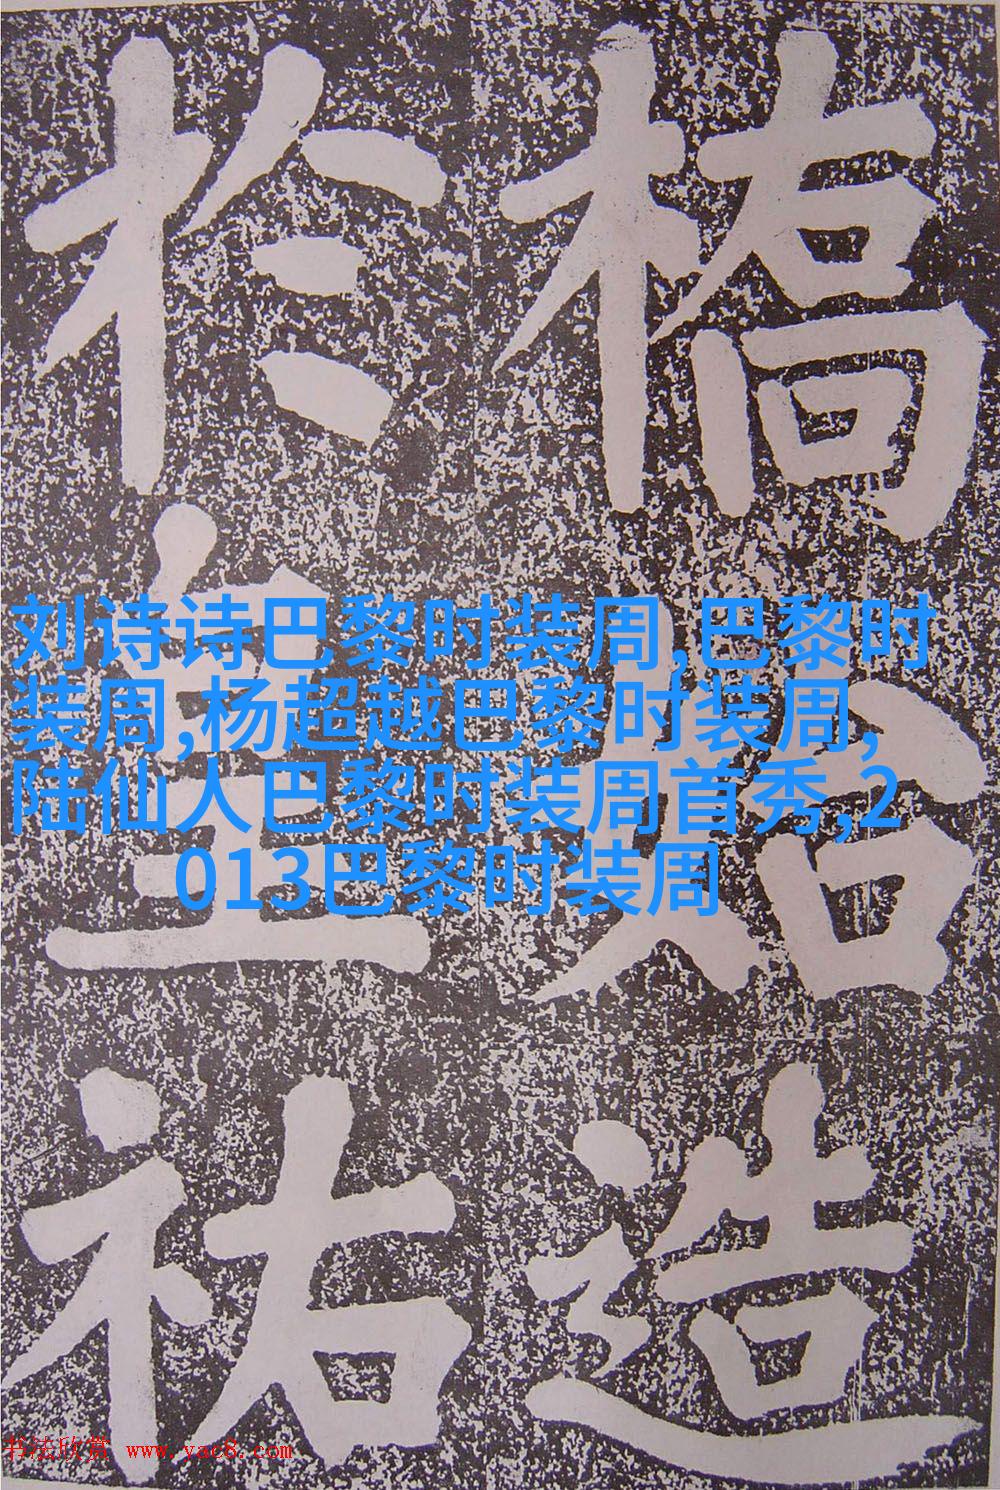 橋始造
於皇祐
刘诗诗巴黎时装周,巴黎时
装周,杨超越巴黎时装周,
陆仙人巴黎时装周首秀,2
013巴黎时装周
书法欣赏 www.yac8.com